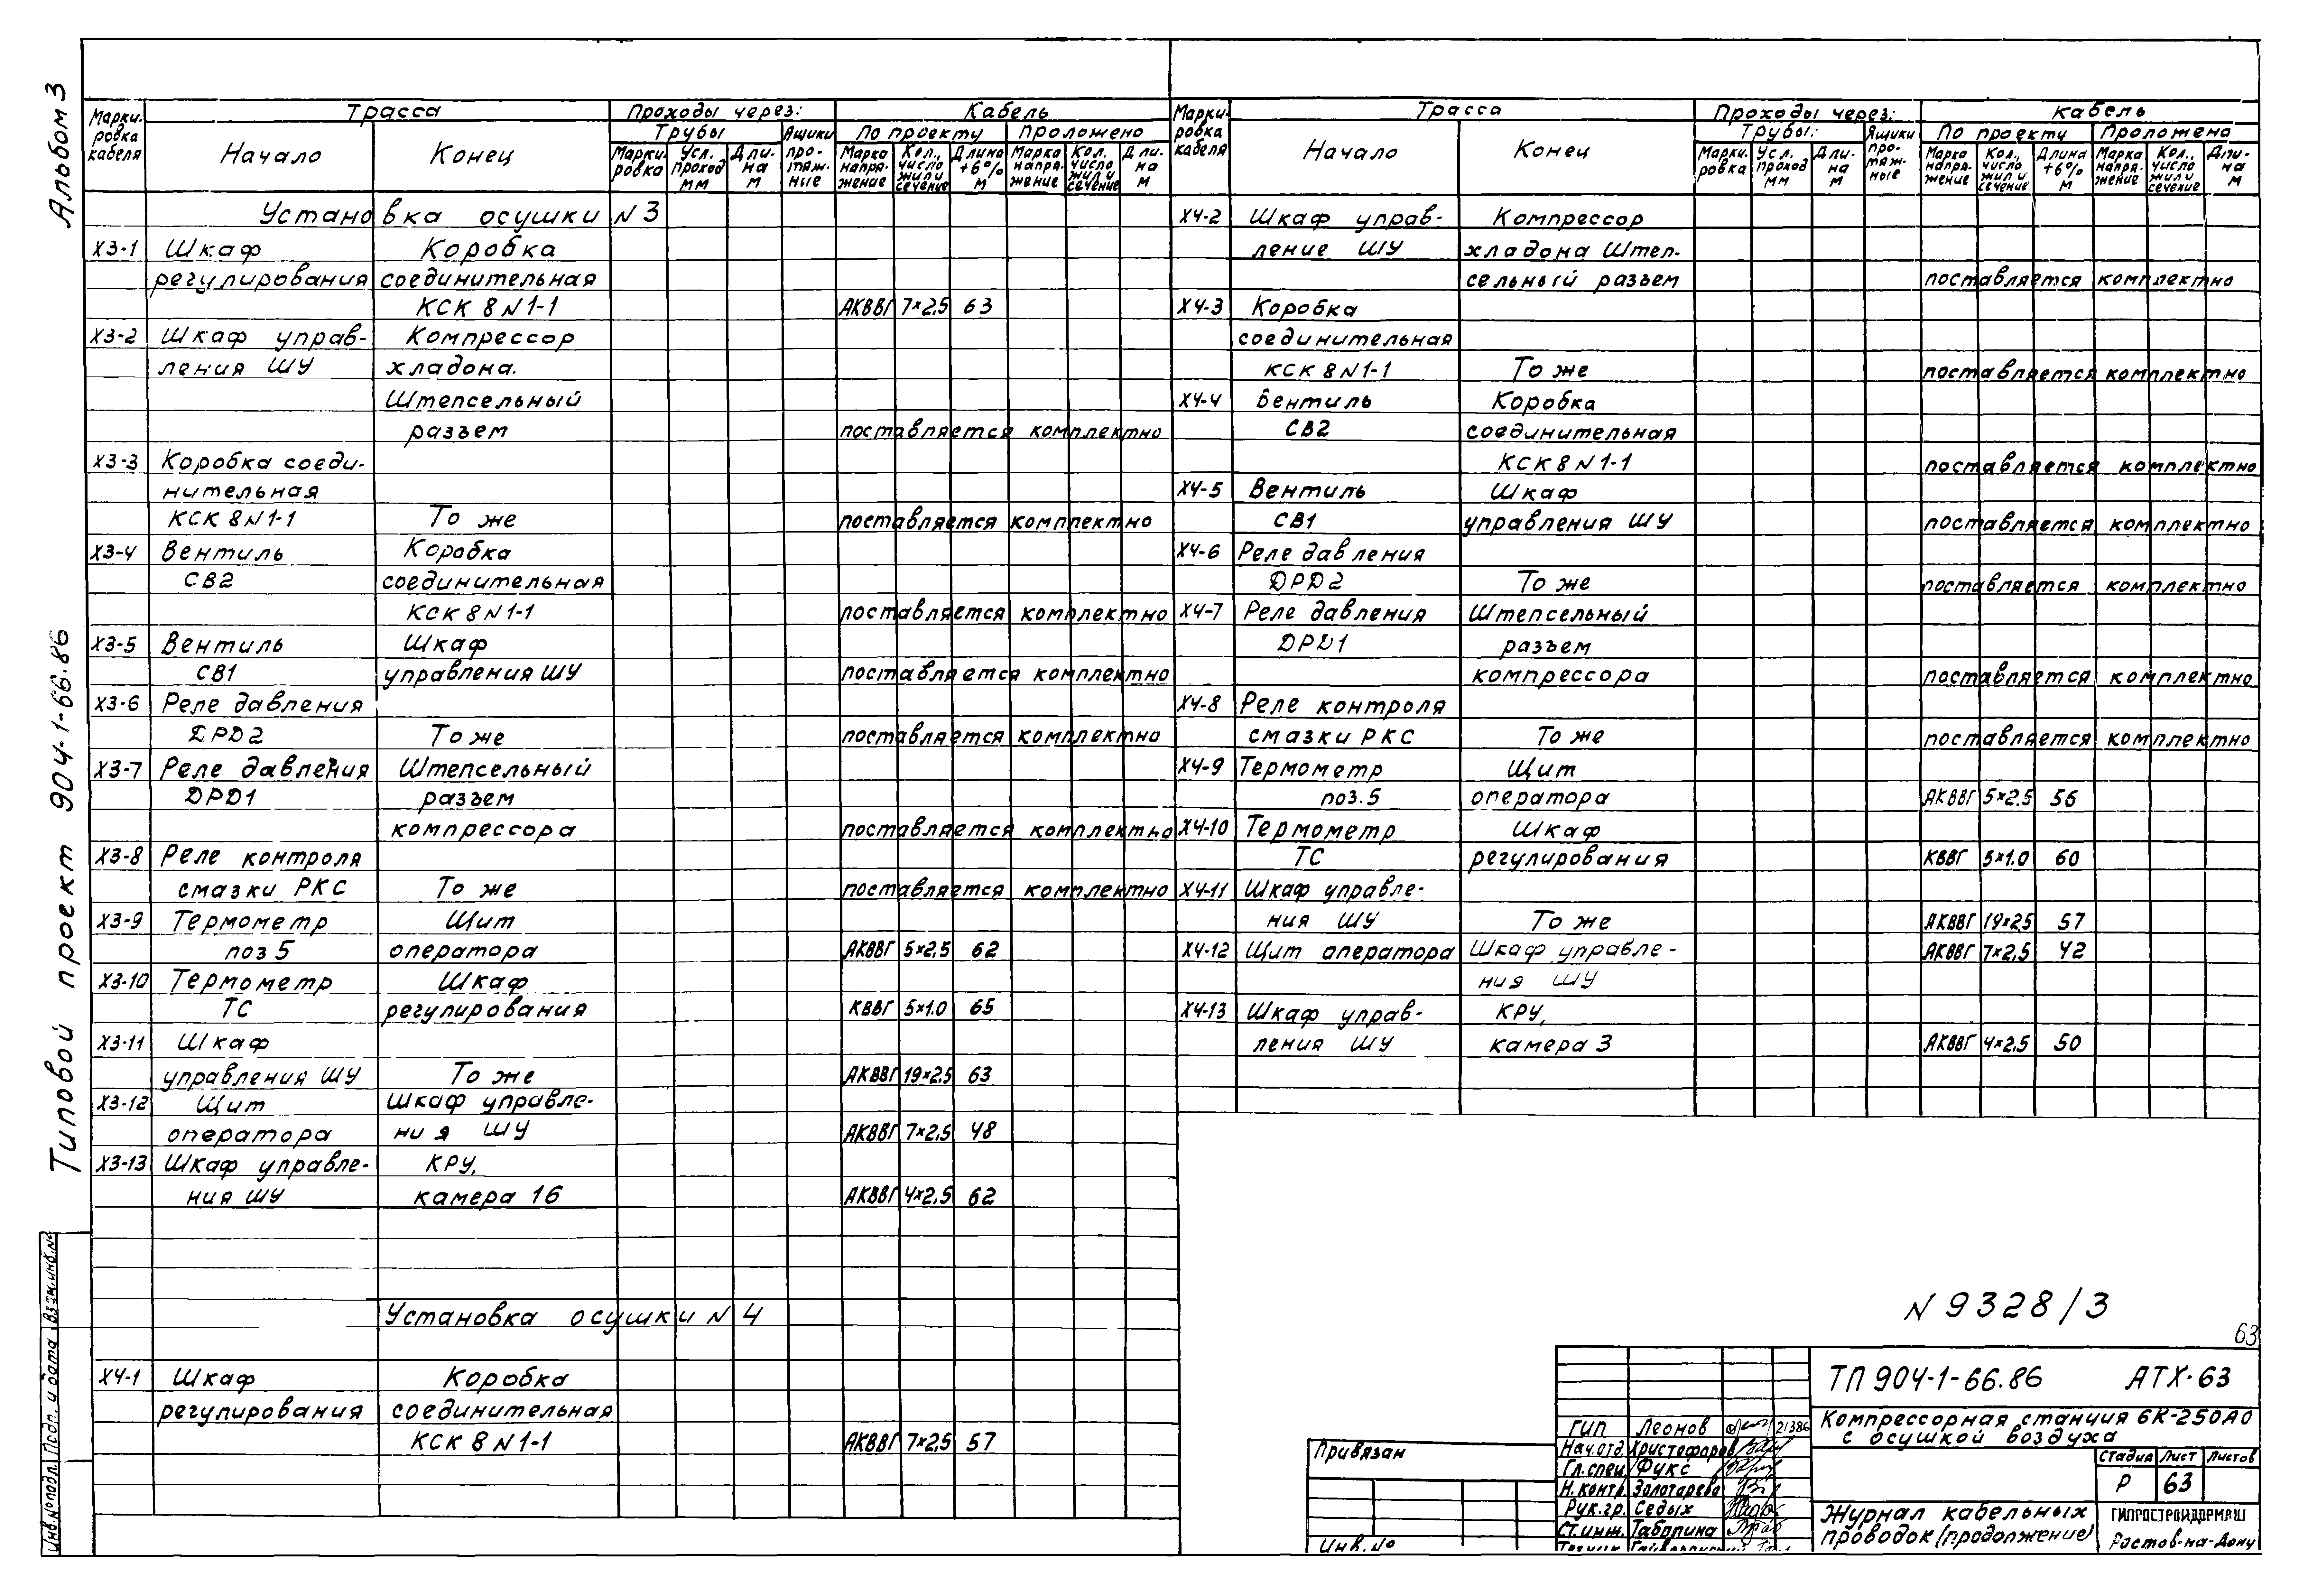 Альбом 3
Типовой проект 904-1-66.86
Инв.№ подл. Подп. и дата Взам.инв.№
Марки-
ровка
кабеля
Трасса
Начало
Конец
Проходы через:
Трубы
Марки-
ровка
Усл.
проход
мм
Дли-
на
м
Ящики
про-
тяж-
ные
Кабель
По проекту
Марка
напря-
жение
Кол.,
число
жил и
сечение
Длина
+6%
м
Проложено
Марка
напря-
жение
Кол.
число
жил и
сечение
Дли-
на
м
Установка осушки N 3
Х3-1 Шкаф Коробка
регулирования соединительная
КСК 8 N 1-1 АКВВГ 7×2,5 63
Х3-2 Шкаф управ- Компрессор
ления ШУ хладона.
Штепсельный
разъем поставляется комплектно
Х3-3 Коробка соеди-
нительная
КСК 8 N 1-1 То же поставляется комплектно
Х3-4 Вентиль Коробка
СВ2 соединительная
КСК 8 N 1-1 поставляется комплектно
Х3-5 Вентиль Шкаф
СВ1 управления ШУ поставляется комплектно
Х3-6 Реле давления
DPD2 То же поставляется комплектно
Х3-7 Реле давления Штепсельный
DPD1 разъем
компрессора поставляется комплектно
Х3-8 Реле контроля
смазки РКС То же поставляется комплектно
Х3-9 Термометр Щит
поз 5 оператора АКВВГ 5×2,5 62
Х3-10 Термометр Шкаф
ТС регулирования КВВГ 5×1.0 65
Х3-11 Шкаф
управления ШУ То же АКВВГ 19×2,5 63
Х3-12 Щит Шкаф управле-
оператора ния ШУ АКВВГ 7×2,5 48
Х3-13 Шкаф управле- КРУ,
ния ШУ камера 16 АКВВГ 4×2,5 62
Установка осушки N 4
Х4-1 Шкаф Коробка
регулирования соединительная
КСК 8 N 1-1 АКВВГ 7×2,5 57
Марки-
ровка
кабеля
Трасса
Начало
Конец
Проходы через:
Трубы:
Марки-
ровка
Усл.
проход
мм
Дли-
на
м
Ящики
про-
тяж-
ные
Кабель
По проекту
Марка
напря-
жение
Кол.,
число
жил и
сечение
Длина
+6%
м
Проложена
Марка
напря-
жение
Кол.,
число
жил и
сечение
Дли-
на
м
Х4-2 Шкаф управ- Компрессор
ление ШУ хладона Штеп-
сельный разъем поставляется комплектно
Х4-3 Коробка
соединительная
КСК 8 N 1-1 То же поставляется комплектно
Х4-4 Вентиль Коробка
СВ2 соединительная
КСК 8 N 1-1 поставляется комплектно
Х4-5 Вентиль Шкаф
СВ1 управления ШУ поставляется комплектно
Х4-6 Реле давления
DPD2 То же поставляется комплектно
Х4-7 Реле давления Штепсельный
DPD1 разъем
компрессора поставляется комплектно
Х4-8 Реле контроля
смазки РКС То же поставляется комплектно
Х4-9 Термометр Щит
поз.5 оператора АКВВГ 5×2.5 56
Х4-10 Термометр Шкаф
ТС регулирования КВВГ 5×1.0 60
Х4-11 Шкаф управле-
ния ШУ То же АКВВГ 19×2,5 57
Х4-12 Щит оператора Шкаф управле- АКВВГ 7×2,5 42
ния ШУ
Х4-13 Шкаф управ- КРУ,
ления ШУ камера 3 АКВВГ 4×2,5 50
N 9328/3
63
Привязан
Инв.№
ГИП Леонов 21386
Нач.отд. Христофоров
Гл.спец. Фукс
Н.контр. Золотарева
Рук.гр. Седых
Ст.инж. Табопина
ТП 904-1-66.86 АТХ-63
Компрессорная станция 6К-250АО
с осушкой воздуха
Стадия Лист Листов
Р 63
Журнал кабельных
проводок (продолжение)
ГИПРОСТРОЙДОРМАШ
Ростов-на-Дону